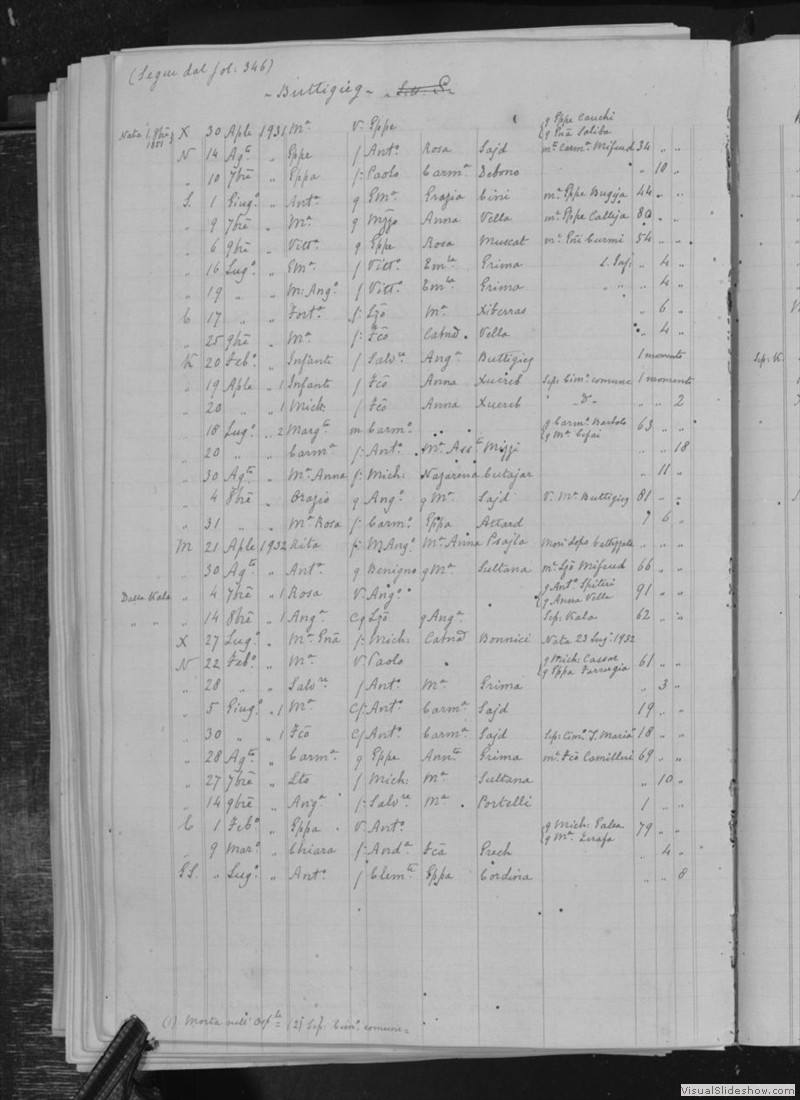 (Segue dal fol: 346)
- Buttigieg -
g Eppe Cauchi
Nata 1. 1851 X 30 Aple 1931 Mª v. Eppe g Saliba
N 14 Agto " Eppe f. Anto Rosa Sajd mª Carmª Mifsud 34 " "
" 10 7bre " Eppa f. Paolo Carmª Debono " 10 "
S. 1 Giugo " Antª g Emª Grazia Cini mª Eppe Bugeja 44 " "
" 9 7bre " Mª g Anna Vella mª Eppe Calleja 80 " "
" 6 9bre " Vittª g Eppe Rosa Muscat mª Curmi 54 " "
" 16 Lugo " Emª f. Vitto Emla Grima S. " 4 "
" 19 " " M: Angª f. Vitto Emla Grima " " " 4 "
C 17 " " Fortª f: Lzo Mª Xiberras " 6 "
" 25 9bre " Mª f: Fco Catnª Vella " 4 "
K 20 Febo " Infante f. Salvre Angª Buttigieg 1 momento
" 19 Aple " 1 Infante f. Fco Anna Xuereb Sep: Cimo comune 1 momento
" 20 " " 1 Mich: f. Fco Anna Xuereb " D° " " " 2
" 18 Lugo " 2 Margta m Carmo g Carmo Bartolo g Mª 63 " "
" 20 " " Carmª f: Anto Mª Assta Mizzi " " 18
" 30 Agto " Mª Anna f: Mich: Nazarena Cutajar " 11 "
" 4 8bre " Orazio g Ango g Mª Sajd v. Mª Buttigieg 81 " "
" 31 " " Mª Rosa f: Carmo Eppa Attard 7 6 "
M 21 Aple 1932 Rita f: M Ango Mª Anna Psajla Mori dopo " " "
" 30 Agto " Anto g Benigno g Mª Sultana mª Lzo Mifsud 66 " "
Dalla Kala " 4 7bre " 1 Rosa v. Ango g Anto Spiteri g Anna Vella 91 " "
" " " 14 8bre " 1 Angª Cg Lzo g Angª Sep: Kala 62 " "
X 27 Lugo " Mª f: Mich: Catnª Bonnici Nata 23 Lugo 1932
N 22 Febo " Mª v. Paolo g Mich: Cassar g Eppa Farrugia 61 " "
" 28 " " Salvre f. Anto Mª Grima " 3 "
" 5 Giugo " 1 Mª Cf: Anto Carmª Sajd 19 " "
" 30 " " 1 Fco Cf: Anto Carmª Sajd Sep: Cimo S. Maria 18 " "
" 28 Agto " Carmª g Eppe Annta Grima mª Fco Camilleri 69 " "
" 27 7bre " f. Mich: Mª Sultana " 10 "
" 14 9bre " Angª f: Salvre Mª Portelli 1 " "
C 1 Febo " Eppa v. Anto g Mich: Galea g Mª Zerafa 79 " "
" 9 Maro " Chiara f. Andª Fca Grech " 4 "
" Lugo " Anto f Clemte Eppa Cordina " " 8
(1) Morta nell' Osple = (2) Sep. Cimo comune =
VisualSlideshow.com